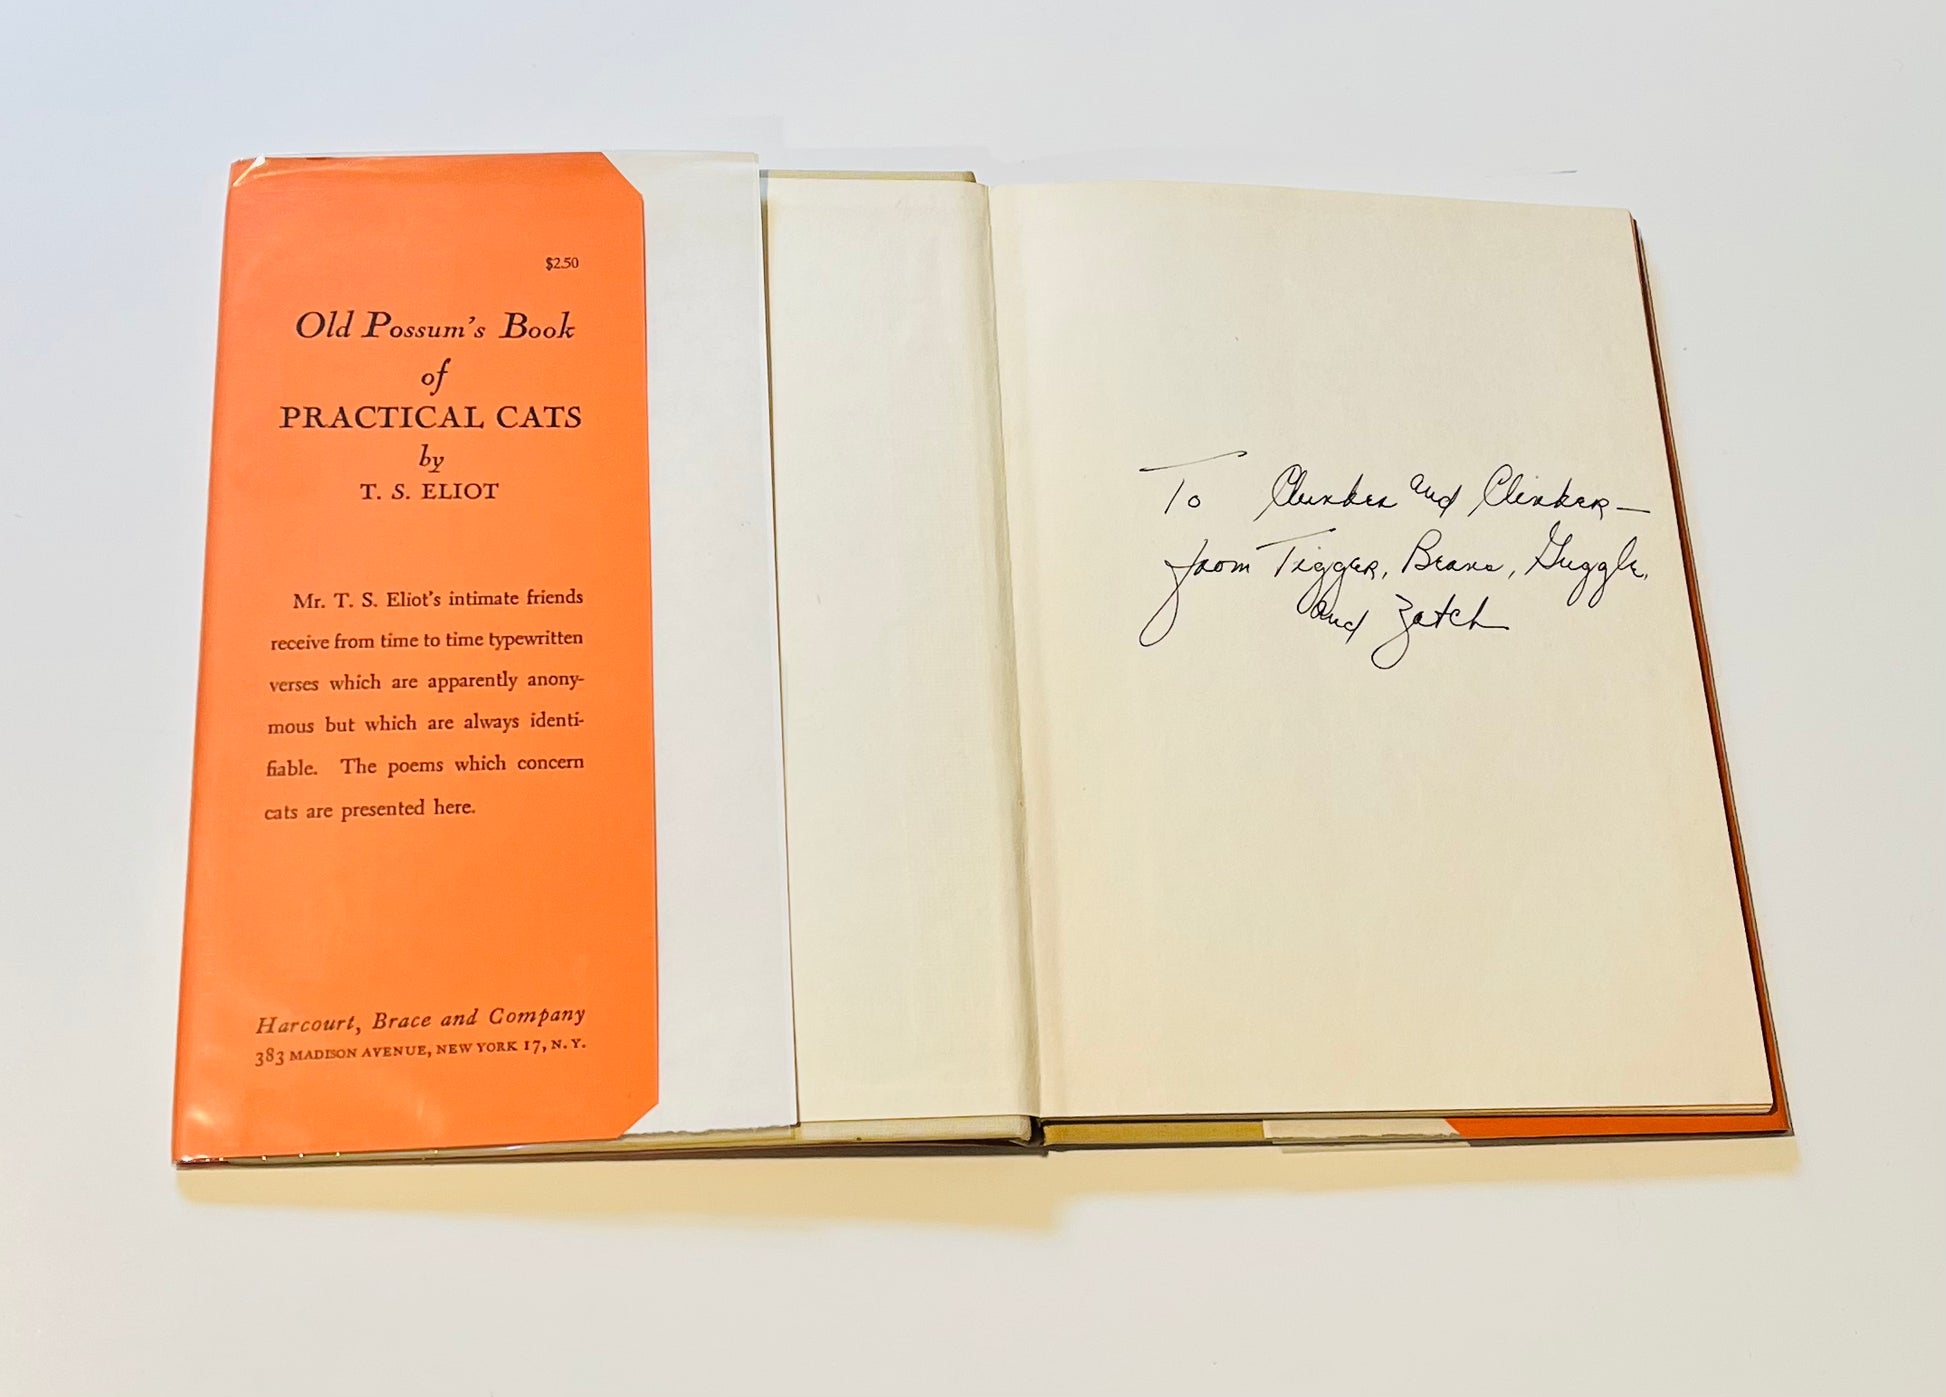 $2.50
Old Possum's Book
of
PRACTICAL CATS
by
T. S. ELIOT
Mr. T. S. Eliot's intimate friends
receive from time to time typewritten
verses which are apparently anony-
mous but which are always identi-
fiable. The poems which concern
cats are presented here.
Harcourt, Brace and Company
383 MADISON AVENUE, NEW YORK 17, N. Y.
To Clunker and Clinker—
from Tigger, Beans, Guggle,
and Zatch